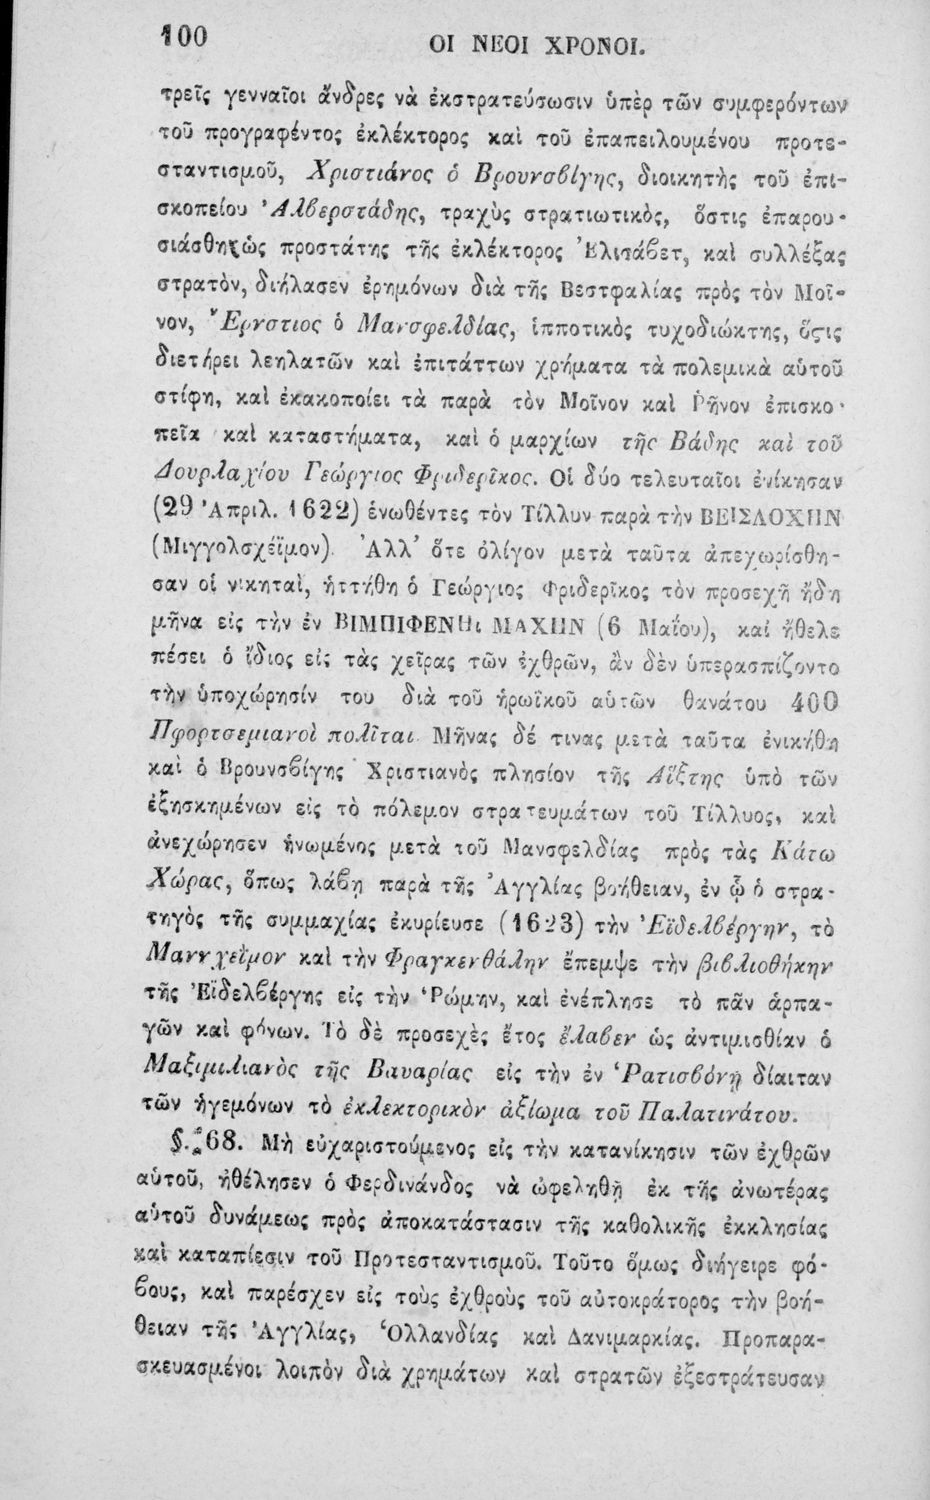 100
ΟΙ ΝΕΟΙ ΧΡΟΝΟΙ.
τρεῖς γενναῖοι ἄνδρες νὰ ἐκστρατεύσωσιν ὑπὲρ τῶν συμφερόντων
τοῦ προγραφέντος ἐκλέκτορος καὶ τοῦ ἐπαπειλουμένου προτε-
σταντισμοῦ, Χριστιάνος ὁ Βρουνσβίγης, διοικητὴς τοῦ ἐπι-
σκοπείου Ἀλβερστάδης, τραχὺς στρατιωτικὸς, ὅστις ἐπαρου-
σιάσθη ὡς προστάτης τῆς ἐκλέκτορος Ἐλισάβετ, καὶ συλλέξας
στρατὸν, διήλασεν ἐρημόνων διὰ τῆς Βεστφαλίας πρὸς τὸν Μοῖ-
νον, Ἔρνστιος ὁ Μανσφελδίας, ἱπποτικὸς τυχοδιώκτης, ὅστις
διετήρει λεηλατῶν καὶ ἐπιτάττων χρήματα τὰ πολεμικὰ αὑτοῦ
στίφη, καὶ ἐκακοποίει τὰ παρὰ τὸν Μοῖνον καὶ Ῥῆνον ἐπισκο-
πεῖα καὶ καταστήματα, καὶ ὁ μαρχίων τῆς Βάδης καὶ τοῦ
Δουρλαχίου Γεώργιος Φριδερῖκος. Οἱ δύο τελευταῖοι ἐνίκησαν
(29 Ἀπριλ. 1622) ἑνωθέντες τὸν Τίλλυν παρὰ τὴν ΒΕΙΣΛΟΧΗΝ
(Μιγγολσχέϊμον). Ἀλλ’ ὅτε ὀλίγον μετὰ ταῦτα ἀπεχωρίσθη-
σαν οἱ νικηταὶ, ἡττήθη ὁ Γεώργιος Φριδερῖκος τὸν προσεχῆ ἤδη
μῆνα εἰς τὴν ἐν ΒΙΜΠΙΦΕΝΗι ΜΑΧΗΝ (6 Μαΐου), καὶ ἤθελε
πέσει ὁ ἴδιος εἰς τὰς χεῖρας τῶν ἐχθρῶν, ἂν δὲν ὑπερασπίζοντο
τὴν ὑποχώρησίν του διὰ τοῦ ἡρωϊκοῦ αὑτῶν θανάτου 400
Πφορτσεμιανοὶ πολῖται. Μῆνας δέ τινας μετὰ ταῦτα ἐνικήθη
καὶ ὁ Βρουνσβίγης Χριστιανὸς πλησίον τῆς Αἴξτης ὑπὸ τῶν
ἐξησκημένων εἰς τὸ πόλεμον στρατευμάτων τοῦ Τίλλυος, καὶ
ἀνεχώρησεν ἡνωμένος μετὰ τοῦ Μανσφελδίας πρὸς τὰς Κάτω
Χώρας, ὅπως λάβῃ παρὰ τῆς Ἀγγλίας βοήθειαν, ἐν ᾧ ὁ στρα-
τηγὸς τῆς συμμαχίας ἐκυρίευσε (1623) τὴν Ἐϊδελβέργην, τὸ
Μαννχεῖμον καὶ τὴν Φραγκενθάλην ἔπεμψε τὴν βιβλιοθήκην
τῆς Ἐϊδελβέργης εἰς τὴν Ῥώμην, καὶ ἐνέπλησε τὸ πᾶν ἁρπα-
γῶν καὶ φόνων. Τὸ δὲ προσεχὲς ἔτος ἔλαβεν ὡς ἀντιμισθίαν ὁ
Μαξιμιλιανὸς τῆς Βαυαρίας εἰς τὴν ἐν Ῥατισβόνῃ δίαιταν
τῶν ἡγεμόνων τὸ ἐκλεκτορικὸν ἀξίωμα τοῦ Παλατινάτου.
§. 68. Μὴ εὐχαριστούμενος εἰς τὴν κατανίκησιν τῶν ἐχθρῶν
αὑτοῦ, ἠθέλησεν ὁ Φερδινάνδος νὰ ὠφεληθῇ ἐκ τῆς ἀνωτέρας
αὑτοῦ δυνάμεως πρὸς ἀποκατάστασιν τῆς καθολικῆς ἐκκλησίας
καὶ καταπίεσιν τοῦ Προτεσταντισμοῦ. Τοῦτο ὅμως διήγειρε φό-
βους, καὶ παρέσχεν εἰς τοὺς ἐχθροὺς τοῦ αὐτοκράτορος τὴν βοή-
θειαν τῆς Ἀγγλίας, Ὁλλανδίας καὶ Δανιμαρκίας. Προπαρα-
σκευασμένοι λοιπὸν διὰ χρημάτων καὶ στρατῶν ἐξεστράτευσαν